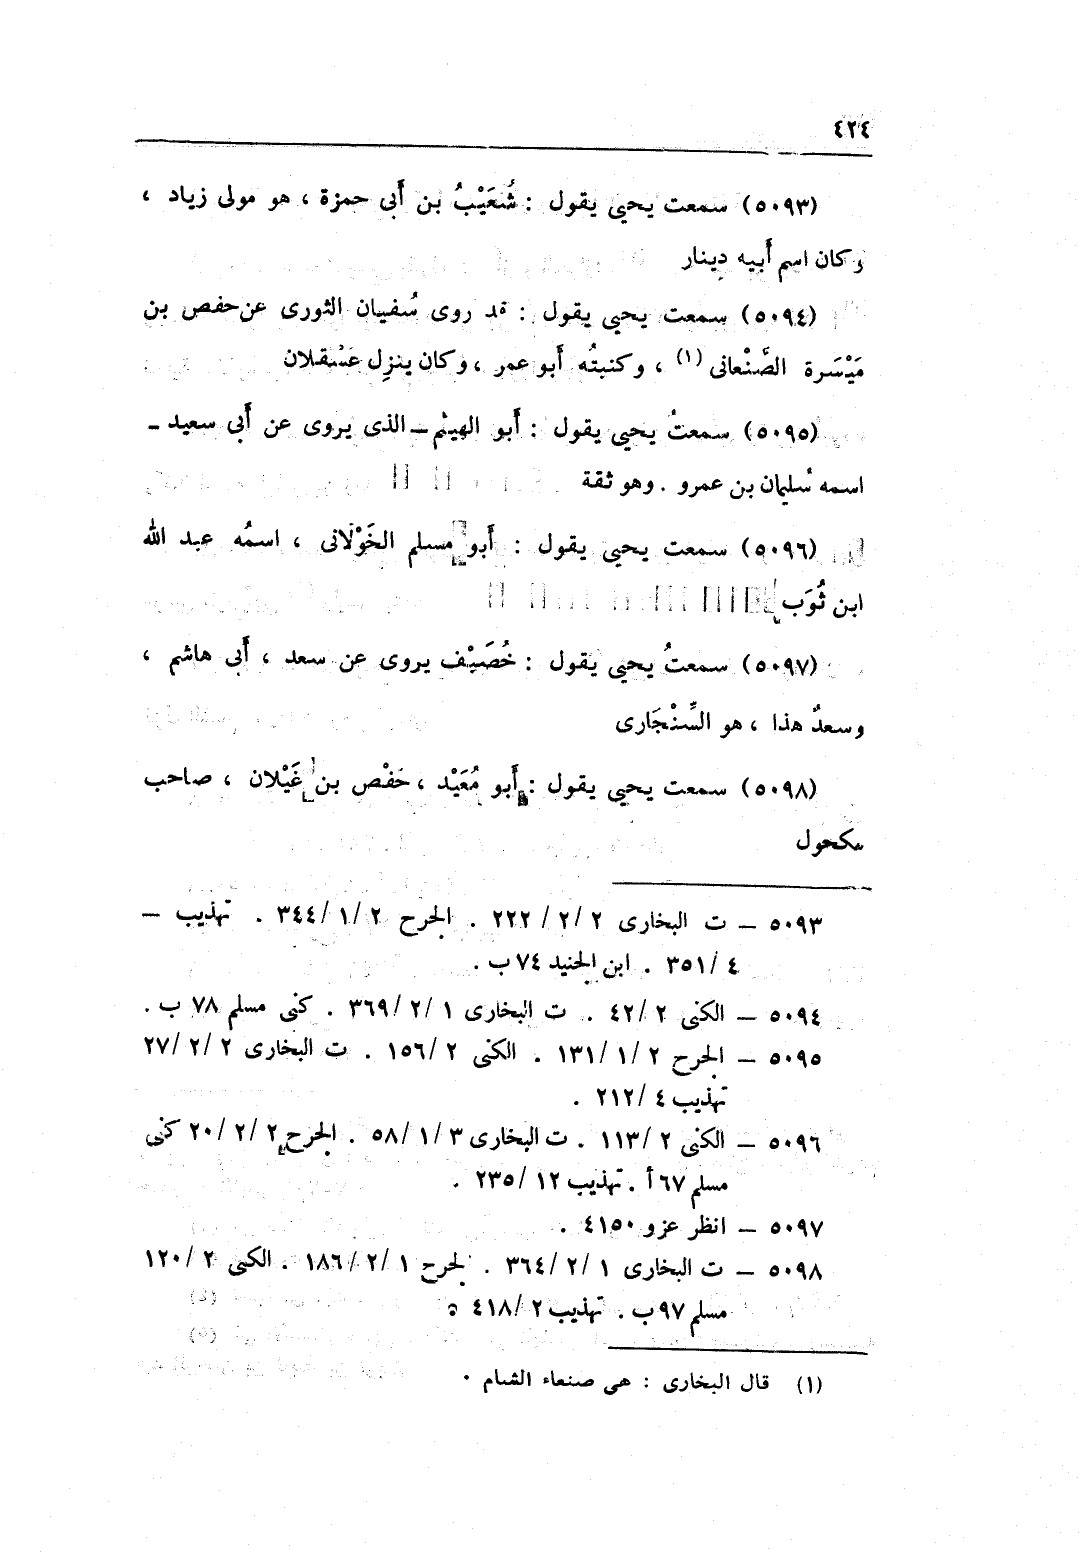 ٤٢٤
(٥٠٩٣) سمعت يحيى يقول : شُعَيْبُ بن أَبى حمزة ، هو مولى زياد ،
وكان اسم أَبيه دينار
(٥٠٩٤) سمعت يحيى يقول : قد روى سُفيان الثورى عن حفص بن
مَيْسَرة الصَّنْعانى (١) ، وكنيتُه أَبو عمر ، وكان ينزِل عَسْقلان
(٥٠٩٥) سمعتُ يحيى يقول : أَبو الهيثم ــ الذى يروى عن أَبى سعيد ــ
اسمه سُليمان بن عمرو . وهو ثقة
(٥٠٩٦) سمعت يحيى يقول : أَبو مسلم الخَوْلانى ، اسمُه عبد الله
ابن ثُوَب
(٥٠٩٧) سمعتُ يحيى يقول : خُصَيْف يروى عن سعد ، أَبى هاشم ،
وسعدٌ هذا ، هو السِّنْجَارى
(٥٠٩٨) سمعت يحيى يقول : أَبو مُعَيْد ، حَفْص بن غَيْلان ، صاحب
مكحول
٥٠٩٣ ــ ت البخارى ٢ /٢ /٢٢٢ . الجرح ٢ /١ /٣٤٤ . تهذيب ــ
٤ /٣٥١ . ابن الجنيد ٧٤ ب .
٥٠٩٤ ــ الكنى ٢ /٤٢ . ت البخارى ١ /٢ /٣٦٩ . كنى مسلم ٧٨ ب .
٥٠٩٥ ــ الجرح ٢ /١ /١٣١ . الكنى ٢ /١٥٦ . ت البخارى ٢ /٢ /٢٧
تهذيب ٤ /٢١٢ .
٥٠٩٦ ــ الكنى ٢ /١١٣ . ت البخارى ٣ /١ /٥٨ . الجرح ٢ /٢ /٢٠ كنى
مسلم ٦٧ أ . تهذيب ١٢ /٢٣٥ .
٥٠٩٧ ــ انظر عزو ٤١٥٠ .
٥٠٩٨ ــ ت البخارى ١ /٢ /٣٦٤ . لجرح ١ /٢ /١٨٦ . الكنى ٢ /١٢٠
مسلم ٩٧ ب . تهذيب ٢ /٤١٨
(١) قال البخارى : هى صنعاء الشام .